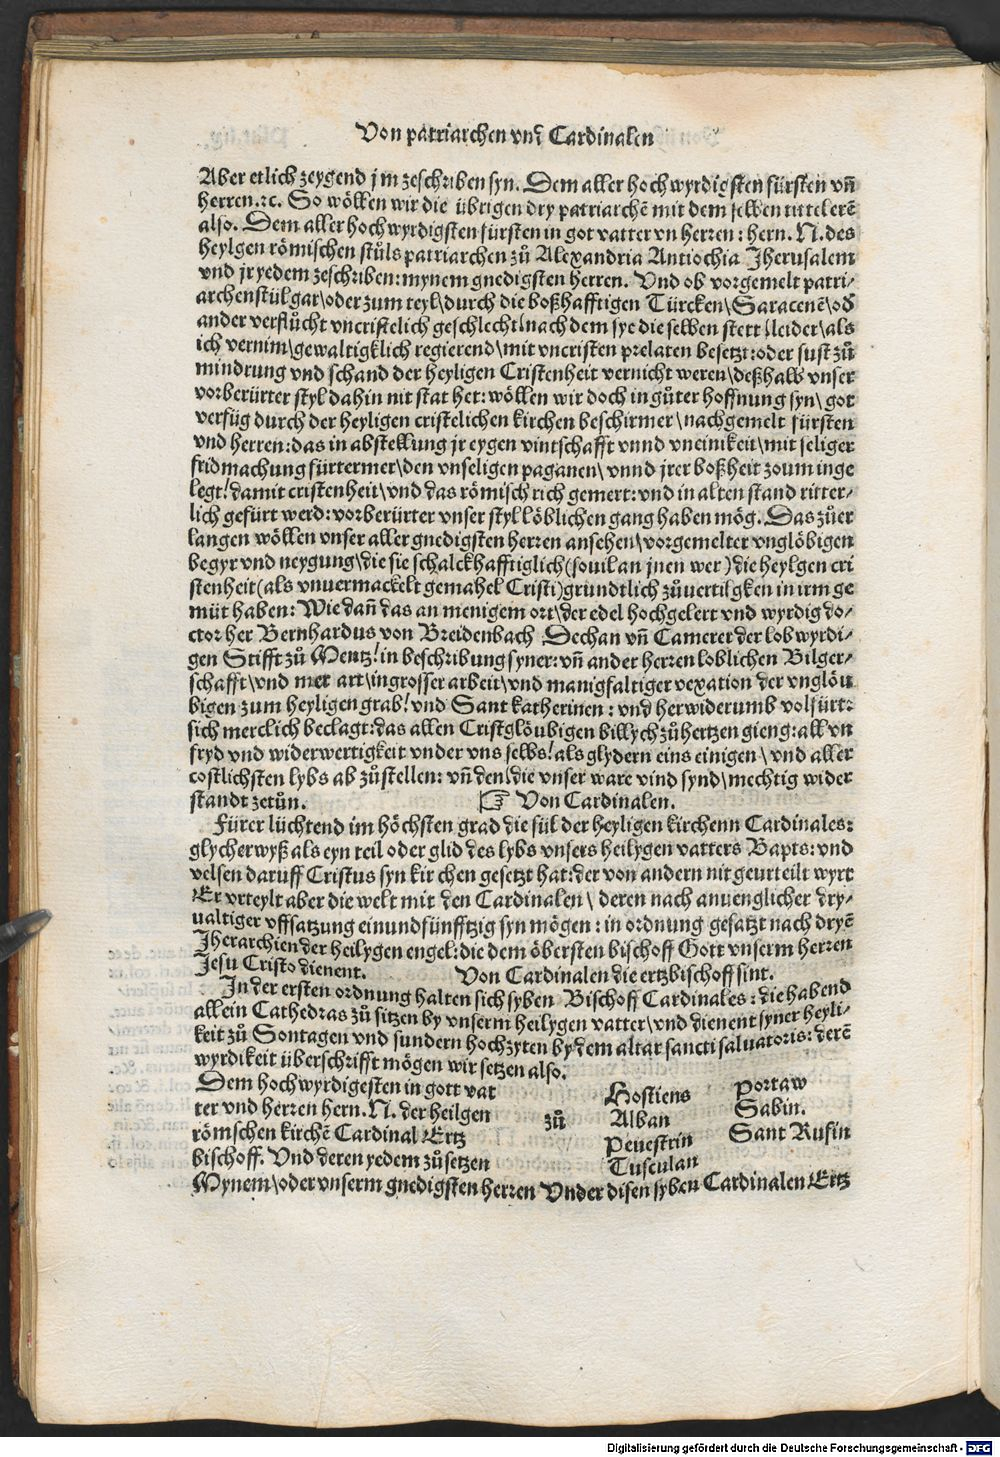 Von patriarchen vnd Cardinalen
Aber etlich zeygend jm zeschriben syn. Dem aller hochwyrdigsten fürsten vn̄
herren.⁊c. So wöllen wir die übrigen dry patriarchē mit dem selben tittel erē
also. Dem aller hochwyrdigsten fürsten in got vatter vn herren: hern. N. des
heylgen römischen stůls patriarchen zů Alexandria Antiochia Jherusalem
vnd jr yedem zeschriben: mynem gnedigsten herren. Vnd ob vorgemelt patri⸗
archenstül gar/oder zum teyl/durch die boßhafftigen Türcken/Saracenē/oď
ander verflůcht vncristelich geschlecht/nach dem sye die selben stett/leider/als
ich vernim/gewaltigklich regierend/mit vncristen prelaten besetzt: oder sust zů
mindrung vnd schand der heyligen Cristenheit vernicht weren/deßhalb vnser
vorberürter styl dahin nit stat het: wöllen wir doch in gůter hoffnung syn/ got
verfüg durch der heyligen cristelichen kirchen beschirmer/nachgemelt fürsten
vnd herren: das in abstellung jr eygen vintschafft vnnd vneinikeit/mit seliger
fridmachung fürtermer/den vnseligen paganen/ vnnd jrer boßheit zoum inge
legt/damit cristenheit/vnd das römisch rich gemert: vnd in alten stand ritter⸗
lich gefürt werd: vorberürter vnser styl löblichen gang haben mög. Das zůer
langen wöllen vnser aller gnedigsten herren ansehen/vorgemelter vnglöbigen
begyr vnd neygung/die sie schalckhafftiglich (souil an jnen wer) die heylgen cri
stenheit (als vnuermackelt gemahel Cristi) gründtlich zůuertilgken in irm ge
müt haben: Wie dan̄ das an menigem ort/der edel hochgelert vnd wyrdig do⸗
ctor her Bernhardus von Breidenbach Dechan vn̄ Camerer der lobwyrdi⸗
gen Stifft zů Mentz/in beschribung syner: vn̄ ander herren loblichen Bilger⸗
schafft/vnd mer art/in grosser arbeit/vnd manigfaltiger vexation der vnglöu
bigen zum heyligen grab/vnd Sant katherinen: vnd herwiderumb volfürt:
sich mercklich beclagt: das allen Cristglöubigen billych zů hertzen gieng: all vn
fryd vnd widerwertigkeit vnder vns selbs/als glydern eins einigen/ vnd aller
costlichsten lybs ab zůstellen: vn̄ den/die vnser ware vind synd/mechtig wider
standt zetůn. ☞ Von Cardinalen.
Fürer lüchtend im höchsten grad die sül der heyligen kirchenn Cardinales:
glycherwyß als eyn teil oder glid des lybs vnsers heilygen vatters Bapts: vnd
velsen daruff Cristus syn kirchen gesetzt hat: der von andern nit geurteilt wyrt
Er vrteylt aber die welt mit den Cardinalen/ deren nach anuenglicher dry⸗
ualtiger vffsatzung einundfünfftzig syn mögen: in ordnung gesatzt nach dryē
Jherarchien der heilygen engel: die dem öbersten bischoff Gott vnserm herren
Jesu Cristo dienent. Von Cardinalen die ertzbischoff sint.
In der ersten ordnung halten sich syben Bischoff Cardinales: die habend
allein Cathedras zů sitzen by vnserm heilygen vatter/vnd dienent syner heyli⸗
keit zů Sontagen vnd sundern hochzyten by dem altar sancti saluatoris: derē
wyrdikeit überschrifft mögen wir setzen also.
Dem hochwyrdigesten in gott vat Hostiens Portaw
ter vnd herren hern. N. der heilgen zů Alban Sabin.
römschen kirchē Cardinal Ertz Penestrin Sant Rufin
bischoff. Vnd deren yedem zůsetzen Tusculan
Mynem/oder vnserm gnedigsten herren Vnder disen syben Cardinalen Ertz
Digitalisierung gefördert durch die Deutsche Forschungsgemeinschaft - DFG